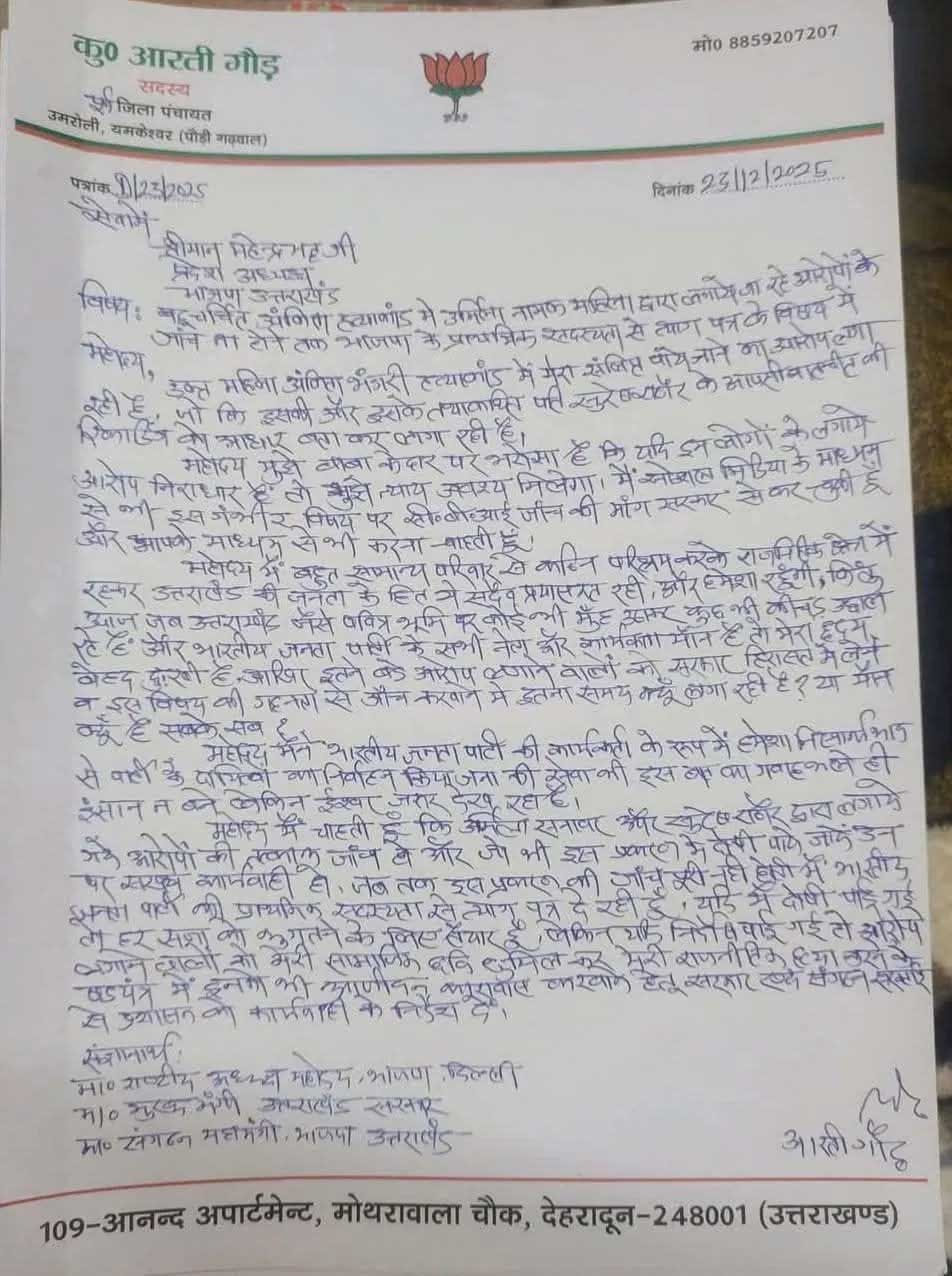 कु० आरती गौड़
मो० 8859207207
सदस्य
पूर्व जिला पंचायत
उमरोली, यमकेश्वर (पौड़ी गढ़वाल)
पत्रांक D/23/2025
दिनांक 23/12/2025
सेवामें
श्रीमान महेन्द्र भट्ट जी
प्रदेश अध्यक्ष
भाजपा उत्तराखंड
विषय: बहुचर्चित अंकिता हत्याकांड में उर्मिला नामक महिला द्वारा लगाये जा रहे आरोपों के
जांच ना होने तक भाजपा के प्राथमिक सदस्यता से त्याग पत्र के विषय में
महोदय,
उक्त महिला अंकिता भंडारी हत्याकांड में मेरा संलिप्त पाये जाने का आरोप लगा
रही है, जो कि इसकी और इसके तथाकथित पति सुरेश राठौर के आपसी बातचीत की
रिकार्डिंग को आधार बना कर लगा रही है।
महोदय मुझे बाबा केदार पर भरोसा है कि यदि इन लोगों के लगाये
आरोप निराधार हैं तो मुझे न्याय अवश्य मिलेगा। मैं सोशल मिडिया के माध्यम
से भी इस गंभीर विषय पर सी०बी०आई जाँच की मांग सरकार से कर चुकी हूँ
और आपके माध्यम से भी करना चाहती हूँ।
महोदय मैं बहुत सामान्य परिवार से कठिन परिश्रम करके राजनितिक क्षेत्र में
रहकर उत्तराखंड की जनता के हित में सदैव प्रयासरत रही, और हमेशा रहूंगी, किन्तु
आज जब उत्तराखंड जैसे पवित्र भूमि पर कोई भी मुँह उठाकर कुछ भी कीचड़ उछाल
रहे हैं और भारतीय जनता पार्टी के सभी नेता और कार्यकर्ता मौन हैं तो मेरा हृदय
बेहद दुःखी है, आखिर इतने बड़े आरोप लगाने वालों को सरकार हिरासत में लेने
व इस विषय की गहनता से जाँच करवाने में इतना समय क्यूँ लगा रही है? या मौन
क्यूँ है सबके सब?
महोदय मैंने भारतीय जनता पार्टी की कार्यकर्ता के रूप में हमेशा निस्वार्थ भाव
से पार्टी के दायित्वों का निर्वाहन किया, जनता की सेवा की इस बात का गवाह भले ही
इंसान न बने लेकिन ईश्वर जरूर देख रहा है।
महोदय मैं चाहती हूँ कि उर्मिला सनावर और सुरेश राठौर द्वारा लगाये
गये आरोपों की तत्काल जाँच हो और जो भी इस प्रकरण के दोषी पाये जाये उन
पर सख्त कार्यवाही हो, जब तक इस प्रकरण की जाँच पूरी नही होती मैं भारतीय
जनता पार्टी की प्राथमिक सदस्यता से त्याग पत्र दे रही हूँ, यदि मैं दोषी पाई गई
तो हर सजा को भुगतने के लिए तैयार हूँ, लेकिन यदि निर्दोष पाई गई तो आरोप
लगाने वालों को मेरी सामाजिक छवि धूमिल कर मेरी राजनीतिक हत्या करने के
षडयंत्र में इनको भी आजीवन कारावास करवाने हेतु सरकार एवं संगठन
से प्रशासन को कार्यवाही के निर्देश दें।
संज्ञानार्थ:
मा० राष्ट्रीय अध्यक्ष महोदय, भाजपा, दिल्ली
मा० मुख्य मंत्री उत्तराखंड सरकार
मा० संगठन महामंत्री, भाजपा उत्तराखंड
आरती गौड़
109-आनन्द अपार्टमेन्ट, मोथरावाला चौक, देहरादून-248001 (उत्तराखण्ड)